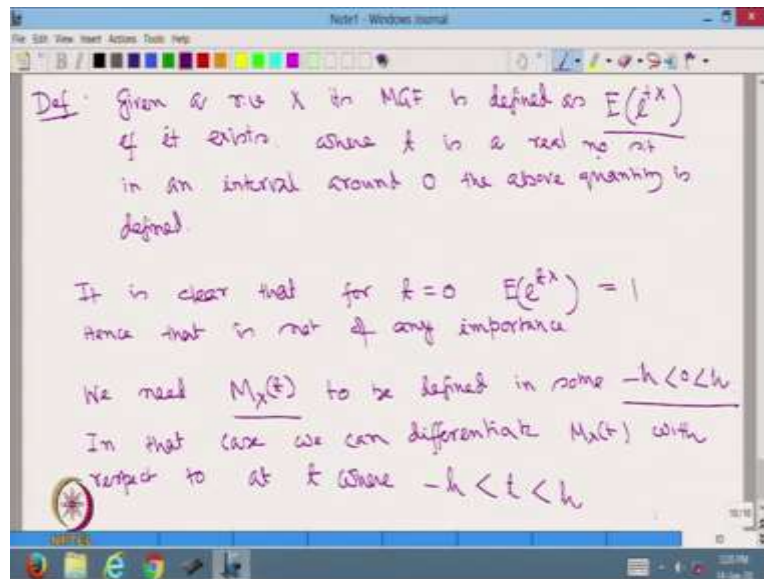 Note1 - Windows Journal
File Edit View Insert Actions Tools Help
Def: Given a r.v X its MGF is defined as E(e^{tX})
if it exists. where t is a real no s.t
in an interval around 0 the above quantity is
defined.
It is clear that for t=0 E(e^{tX}) = 1
Hence that is not of any importance
We need M_X(t) to be defined in some -h<0<h
In that case we can differentiate M_X(t) with
respect to at t where -h < t < h
NPTEL
10/10